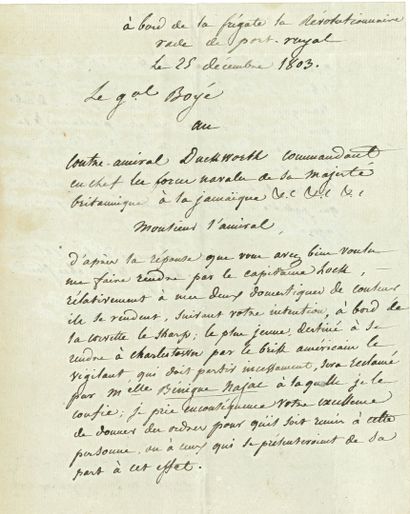 à bord de la frégate la Révolutionnaire
rade de port-royal
Le 25 décembre 1803.
Le gal Boyé
au
Contre-amiral Duckworth commandant
en chef les forces navales de sa majesté
britannique à la jamaïque &.c &.c &.c
Monsieur l'amiral,
d'après la réponse que vous avez bien voulu
me faire rendre par le capitaine Lock,
relativement à mes deux domestiques de couleur
ils se rendent, suivant votre intention, à bord de
la corvette le Sharp; le plus jeune, destiné à se
rendre à charlestown par le brik américain le
vigilant qui doit partir incessament, sera réclamé
par Melle Bénigne Najac à laquelle je le
confie; je prie en conséquence votre excellence
de donner des ordres pour qu'il soit remis à cette
personne, ou à ceux qui se présenteroient de sa
part à cet effet.